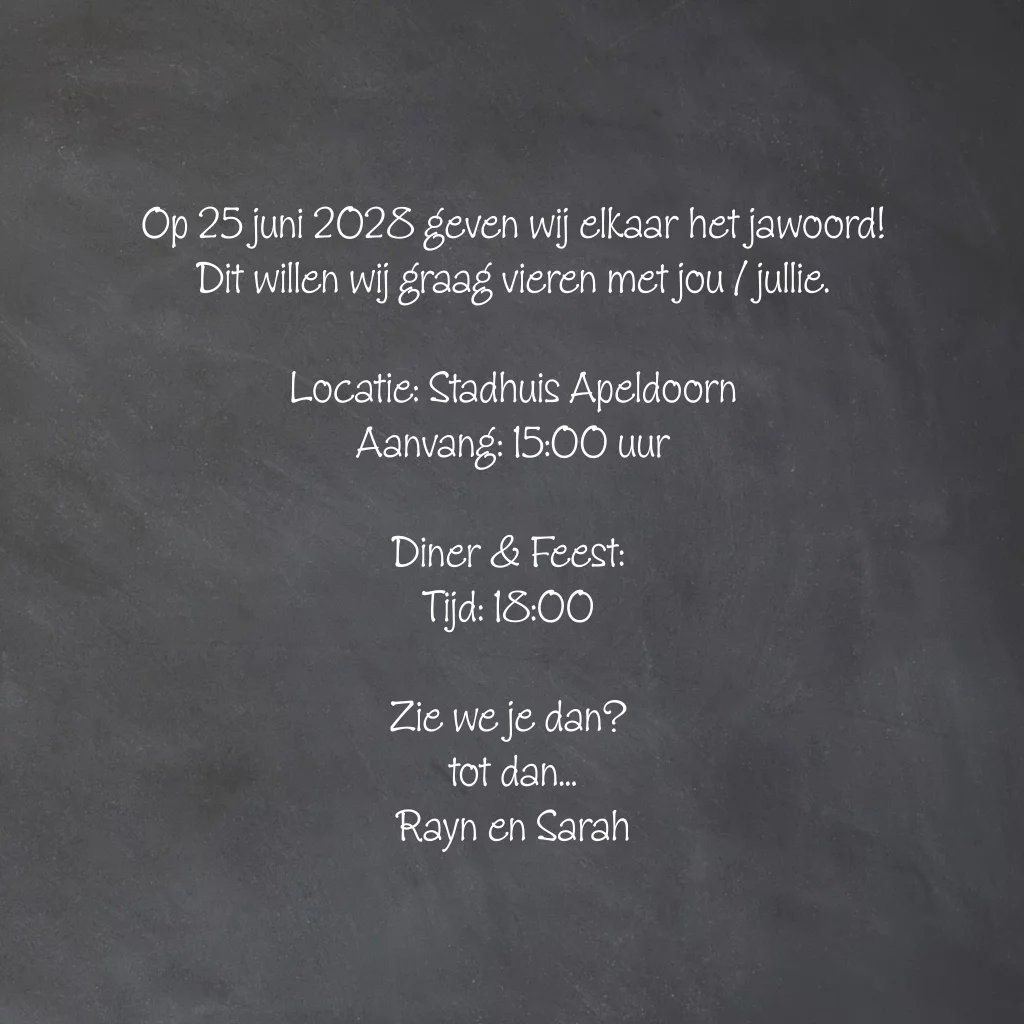 Op 25 juni 2028 geven wij elkaar het jawoord!
Dit willen wij graag vieren met jou / jullie.
Locatie: Stadhuis Apeldoorn
Aanvang: 15:00 uur
Diner & Feest:
Tijd: 18:00
Zie we je dan?
tot dan...
Rayn en Sarah